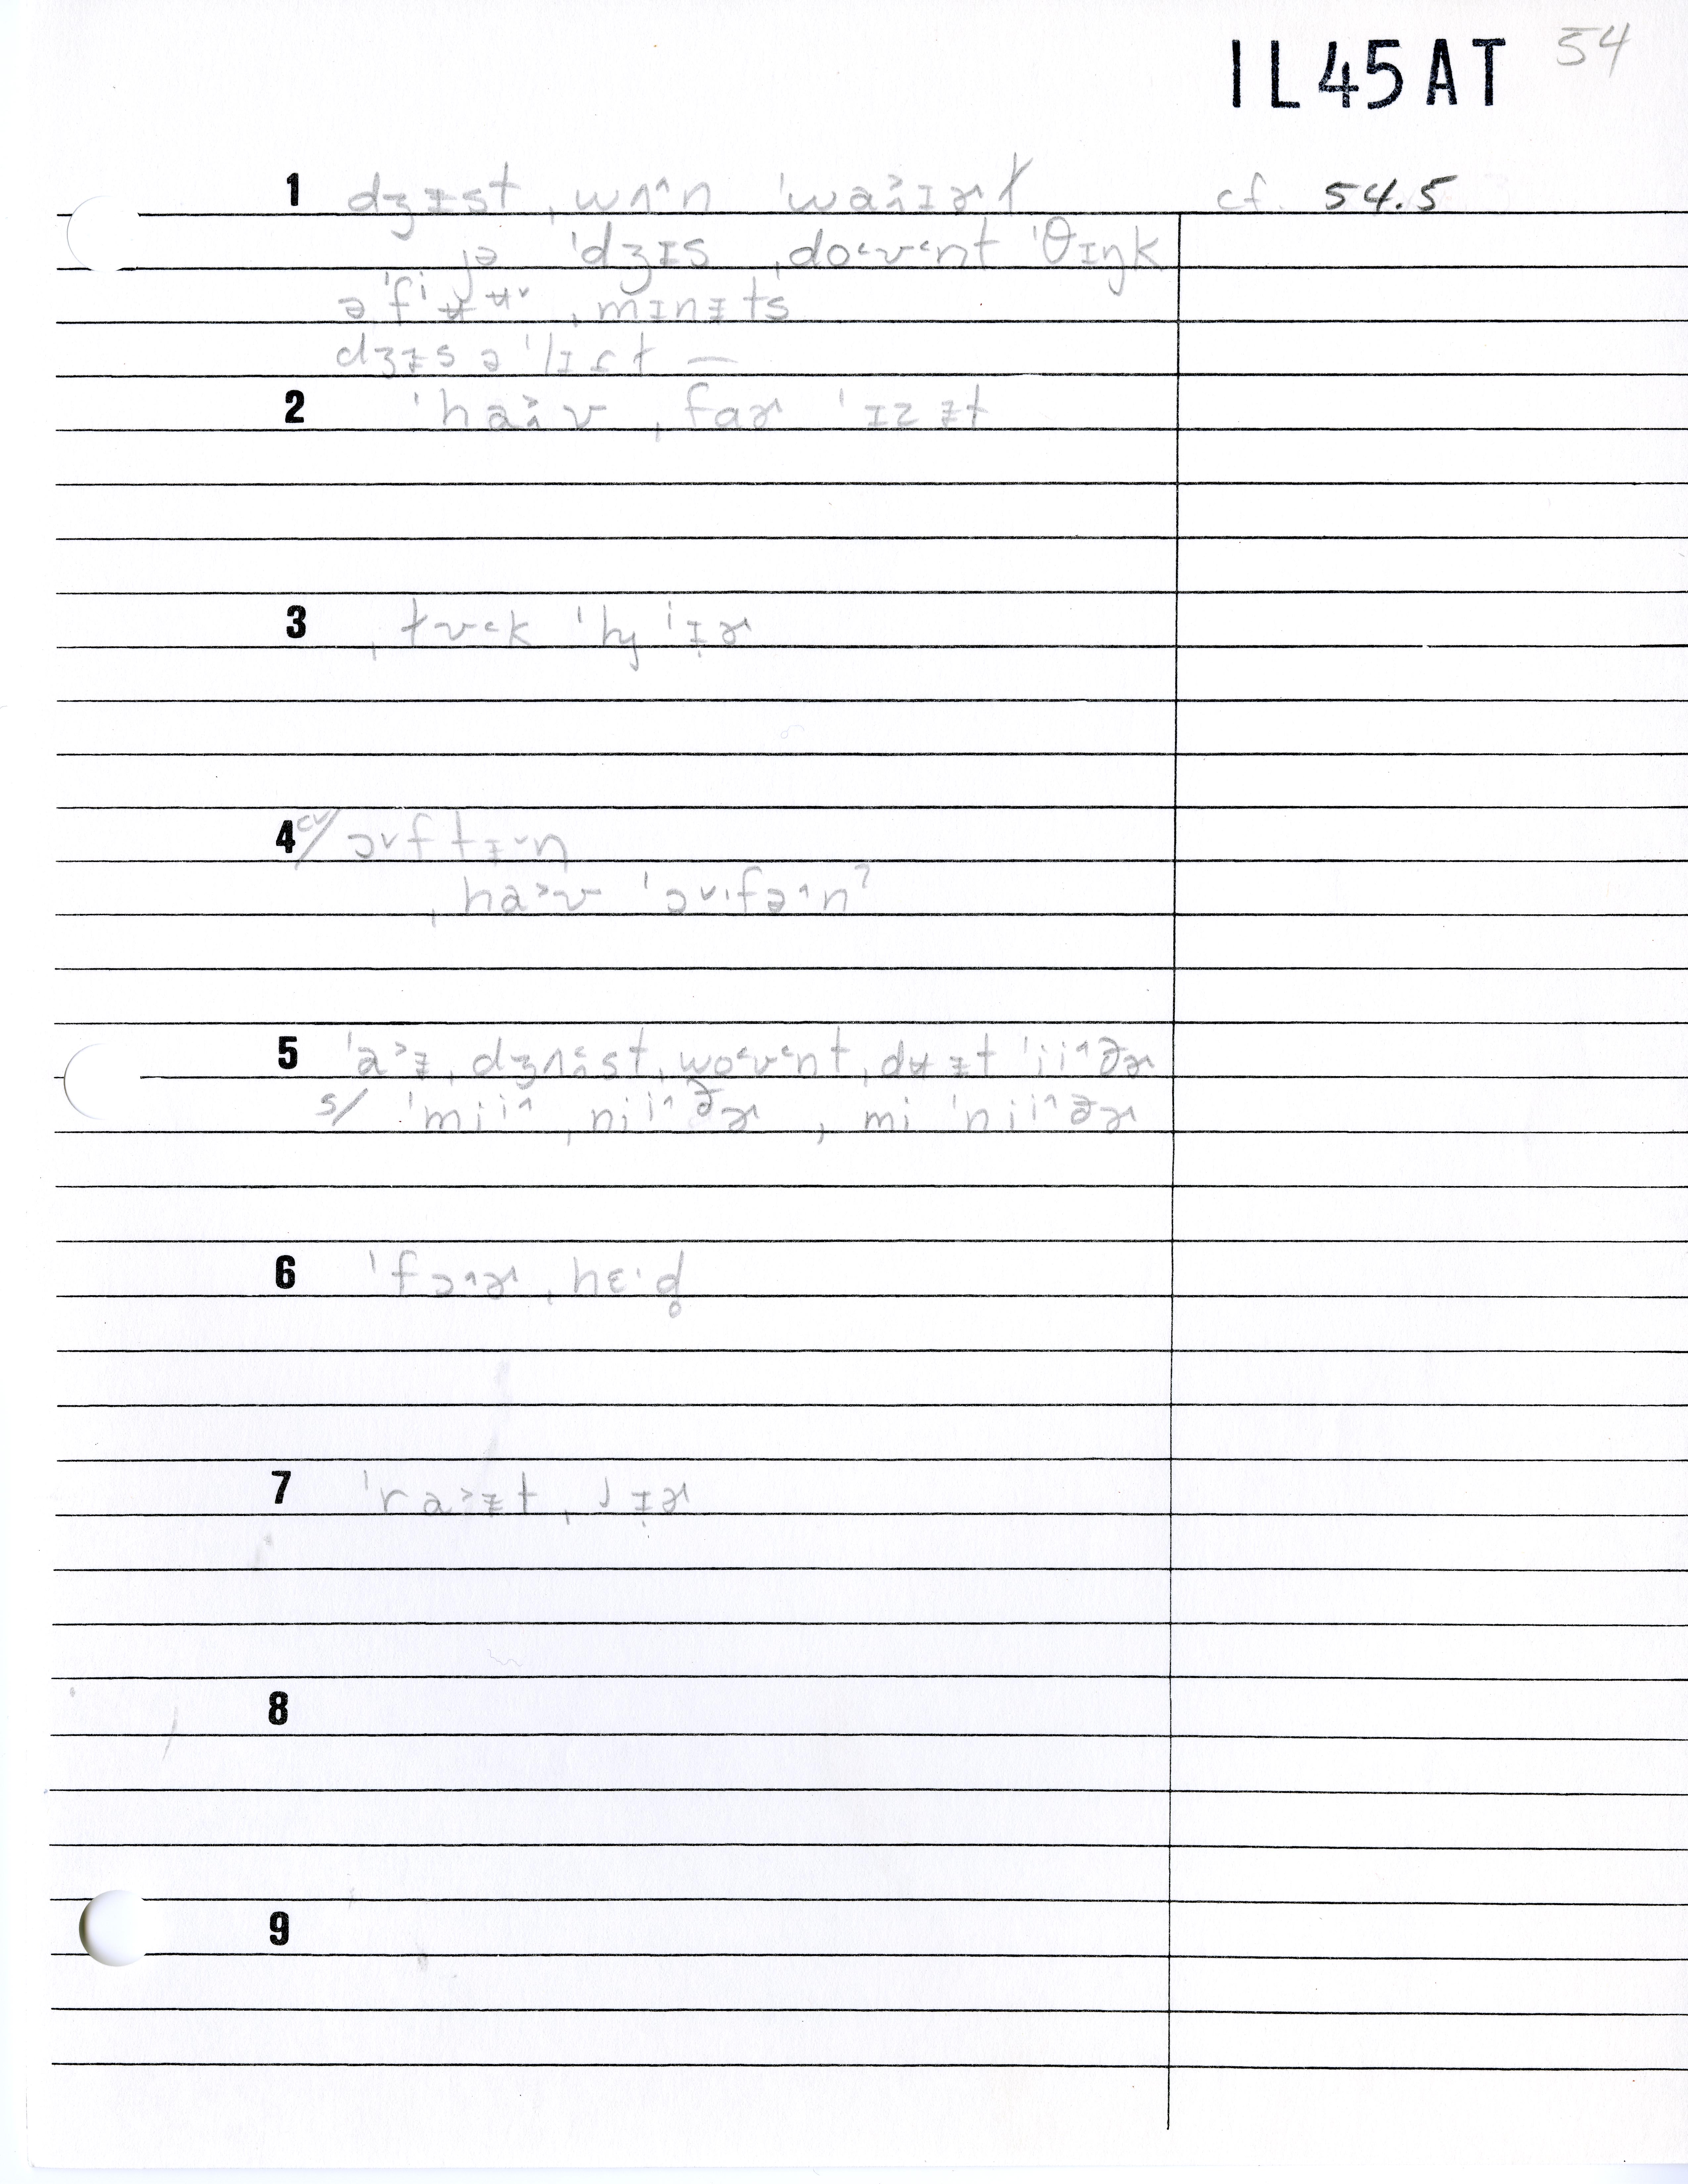 IL45AT 54
1 dʒɪ̵st ˌwʌ˄n ˈwaɪɚt cf. 54.5
jə ˈdʒɪs ˌdo˂ʊ˂nt ˈθɪŋk
ə ˈfⁱʉʉ˅ ˌmɪnɪ̵ts
dʒɪ̵s ə ˈlɪst —
2 ˈha˃ʊ ˌfaɚ ˈɪzɪ̵t
3 ˌtʊ˂k ˈhjⁱɪɚ
4 cv/ ɔ˅ftɪ̵˅n
ˌha˃ʊ ˈɔ˅·fə˄n?
5 ˈa˃ɪ̵ ˌdʒʌst ˌwo˂ʊ˂nt ˌdʉɪ̵t ˈii˄ðɚ
s/ ˈmii˄ ˌnii˄ðɚ , mi ˈnii˄ðɚ
6 ˈfɔ˄ɚ ˌhɛ·d̥
7 ˈra˃ɪ̵t ˌɪɚ
8
9